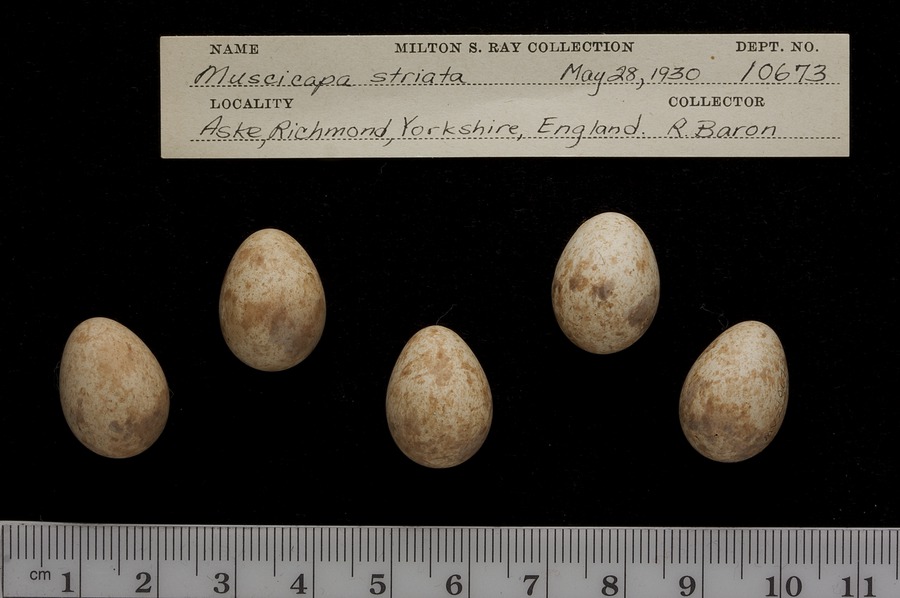 NAME MILTON S. RAY COLLECTION DEPT. NO.
Muscicapa striata May 28, 1930 10673
LOCALITY COLLECTOR
Aske, Richmond, Yorkshire, England. R. Baron
cm 1 2 3 4 5 6 7 8 9 10 11